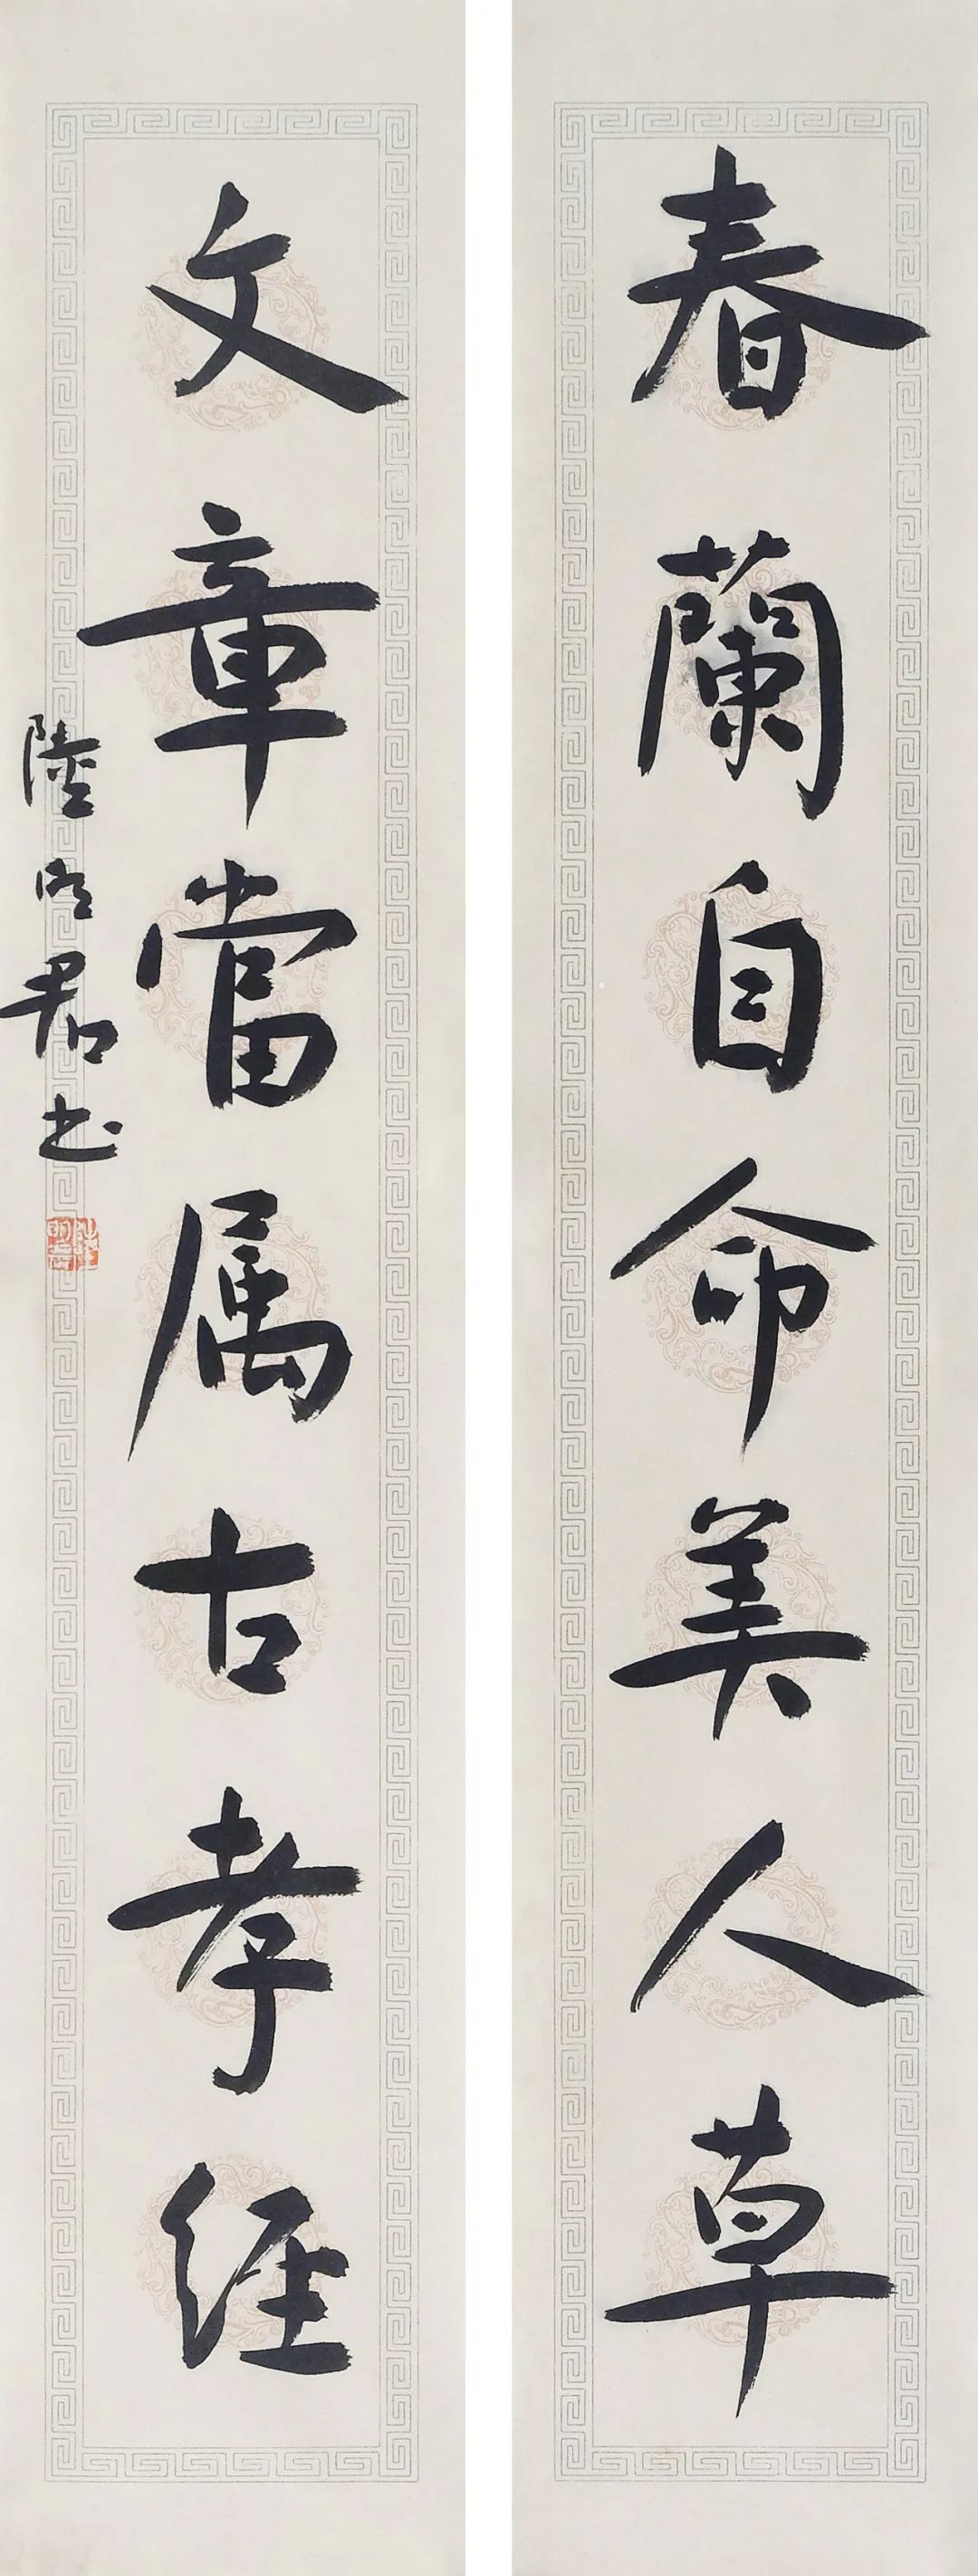 春蘭自命美人草
文章當属古孝经
陸明君书